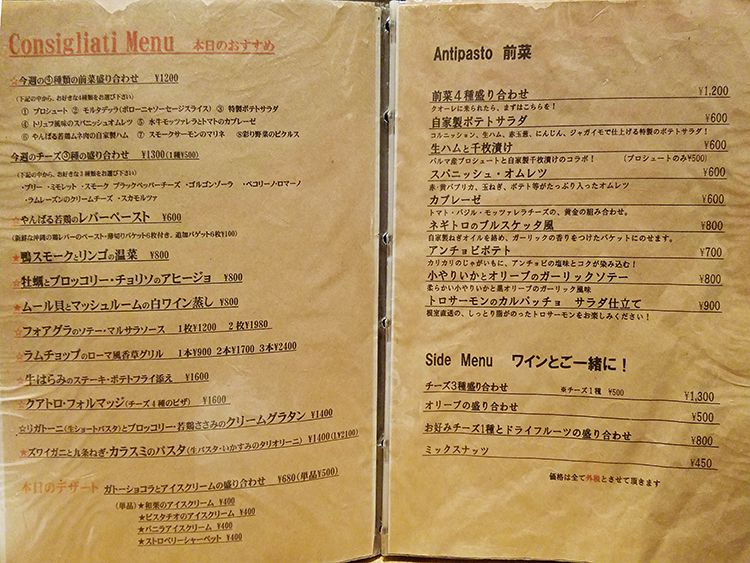 Consigliati Menu 本日のおすすめ
☆今週の④種類の前菜盛り合わせ ¥1200
(下記の中から、お好きな4種類をお選び下さい)
① プロシュート ② モルタデッラ(ボローニャソーセージスライス) ③ 特製ポテトサラダ
④ トリュフ風味のスパニッシュオムレツ ⑤ 水牛モッツァレラとトマトのカプレーゼ
⑥ やんばる若鶏ムネ肉の自家製ハム ⑦ スモークサーモンのマリネ ⑧彩り野菜のピクルス
今週のチーズ③種の盛り合わせ ¥1300(1種¥500)
(下記の中から、お好きな3種類をお選び下さい)
・ブリー ・ミモレット ・スモーク ブラックペッパーチーズ ・ゴルゴンゾーラ ・ペコリーノ・ロマーノ
・ラムレーズンのクリームチーズ ・スカモルツァ
☆やんばる若鶏のレバーペースト ¥600
(新鮮な沖縄の鶏レバーのペースト・薄切りバケット6枚付き。追加バゲット6枚¥100)
★鴨スモークとリンゴの温菜 ¥800
☆牡蠣とブロッコリー・チョリソのアヒージョ ¥800
★ムール貝とマッシュルームの白ワイン蒸し ¥800
☆フォアグラのソテー・マルサラソース 1枚¥1200 2枚¥1980
☆ラムチョップのローマ風香草グリル 1本¥900 2本¥1700 3本¥2400
★牛はらみのステーキ・ポテトフライ添え ¥1600
☆クアトロ・フォルマッジ(チーズ4種のピザ) ¥1600
☆リガトーニ(生ショートパスタ)とブロッコリー・若鶏ささみのクリームグラタン ¥1400
★ズワイガニと九条ねぎ・カラスミのパスタ(生パスタ・いかすみのタリオリーニ) ¥1400(1/2¥100)
本日のデザート ガトーショコラとアイスクリームの盛り合わせ ¥680(単品¥500)
(単品)★和栗のアイスクリーム ¥400
★ピスタチオのアイスクリーム ¥400
★バニラアイスクリーム ¥400
★ストロベリーシャーベット ¥400
Antipasto 前菜
前菜4種盛り合わせ ¥1,200
クオーレに来られたら、まずはこちらを!
自家製ポテトサラダ ¥600
コルニッション、生ハム、赤玉葱、にんじん、ジャガイモで仕上げる特製のポテトサラダ!
生ハムと千枚漬け ¥600
パルマ産プロシュートと自家製千枚漬けのコラボ! (プロシュートのみ¥500)
スパニッシュ・オムレツ ¥600
赤・黄パプリカ、玉ねぎ、ポテト等がたっぷり入ったオムレツ
カプレーゼ ¥600
トマト・バジル・モッツァレラチーズの、黄金の組み合わせ。
ネギトロのブルスケッタ風 ¥800
自家製ねぎオイルを絡め、ガーリックの香りをつけたバケットにのせます。
アンチョビポテト ¥700
カリカリのじゃがいもに、アンチョビの塩味とコクが染み込む!
小やりいかとオリーブのガーリックソテー ¥800
柔らかい小やりいかと黒オリーブのガーリック風味
トロサーモンのカルパッチョ サラダ仕立て ¥900
根室直送の、しっとり脂がのったトロサーモンをお楽しみください!
Side Menu ワインとご一緒に!
チーズ3種盛り合わせ ※チーズ1種 ¥500 ¥1,300
オリーブの盛り合わせ ¥500
お好みチーズ1種とドライフルーツの盛り合わせ ¥800
ミックスナッツ ¥450
価格は全て外税とさせて頂きます